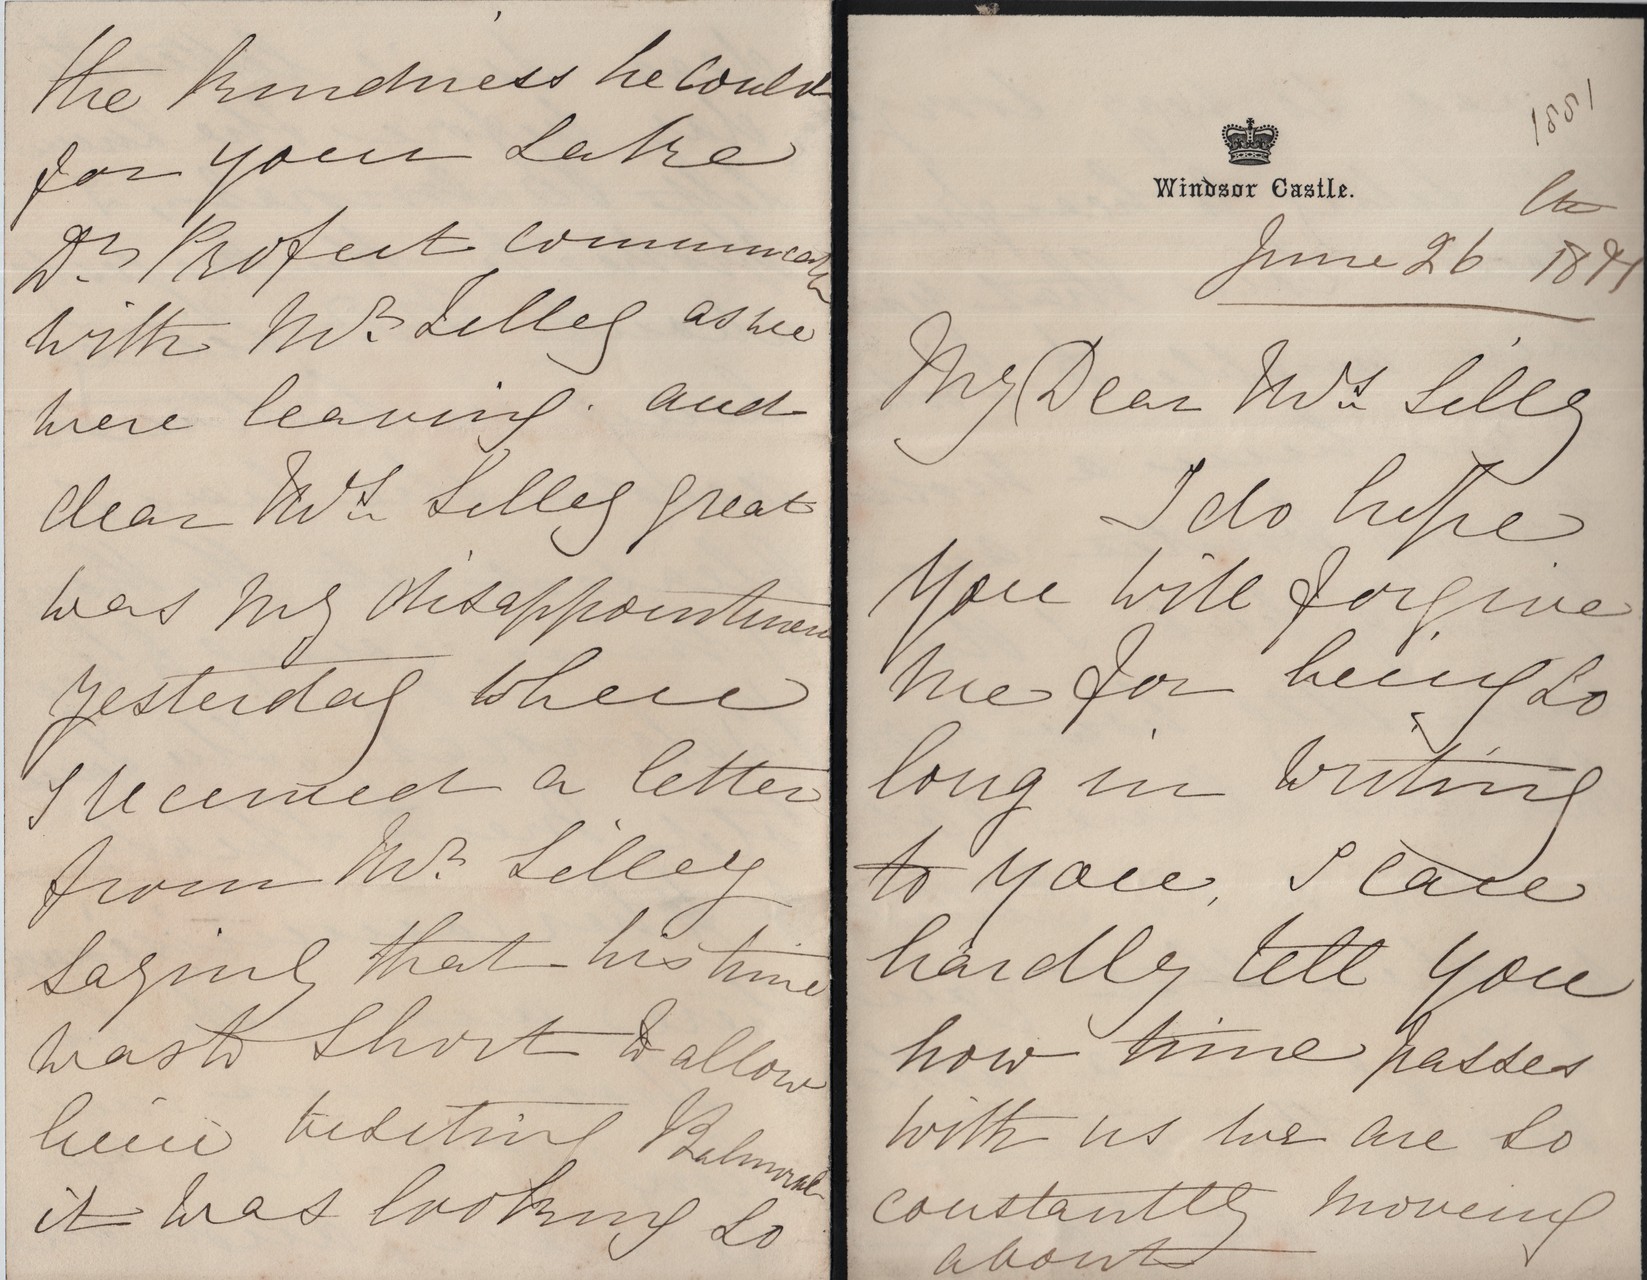 1881
Windsor Castle.
June 26 1881
My Dear Mrs Lilly
I do hope
you will forgive
me for being so
long in writing
to you, I can
hardly tell you
how time passes
with us we are so
constantly moving
about
the kindness he could
for your sake
Dr Profeit communicate
with Mr Lilley as we
were leaving. and
dear Mrs Lilley great
was my disappointment
yesterday when
I received a letter
from Mr Lilley
saying that his time
was to short to allow
him visiting Balmoral
it was looking so